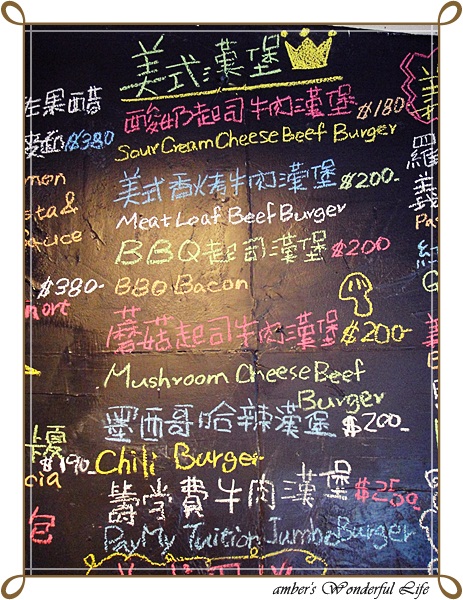 美式漢堡
酸奶起司牛肉漢堡 $180
Sour Cream Cheese Beef Burger
美式香烤牛肉漢堡 $200-
Meat Loaf Beef Burger
BBQ起司漢堡 $200
BBQ Bacon
蘑菇起司牛肉漢堡 $200-
Mushroom Cheese Beef
Burger
墨西哥哈辣漢堡 $200-
Chili Burger
籌學費牛肉漢堡 $250
Pay My Tuition Jumbo Burger
果醋
$380
$380-
$190-
包
羅
義
amber's Wonderful Life